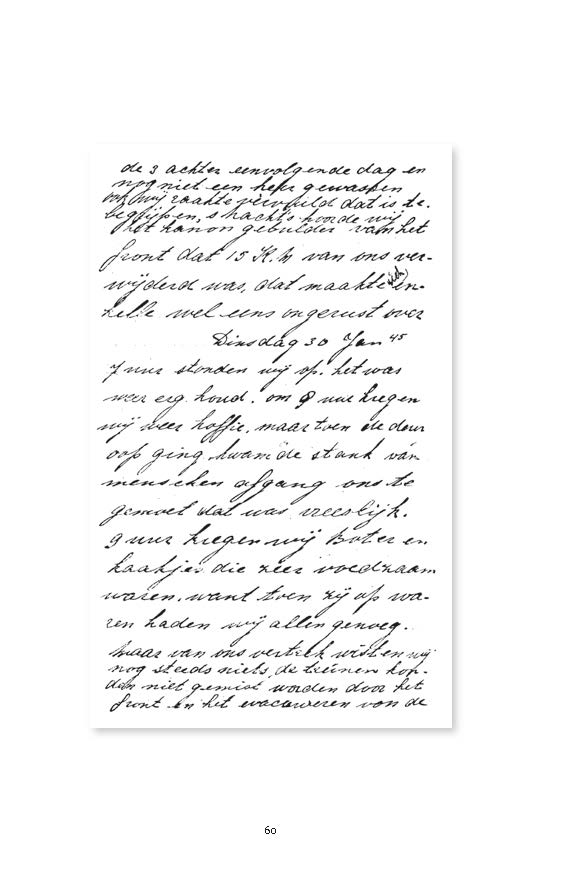 de 3 achter eenvolgende dag en
nog niet een keer gewassen
ook wij raakte vervuild dat is te.
begrijpen, s'nachts hoorde wij
het kanon gebulder van het
front dat 15 K.M van ons ver-
wijderd was, dat maakte (zich) en-
kelle wel eens ongerust over
Dinsdag 30 Jan 45
7 uur stonden wij op. het was
weer erg koud. om 8 uur kregen
wij weer koffie, maar toen de deur
oop ging kwam de stank van
menschen afgang ons te
gemoet dat was vreeslijk.
9 uur kregen wij Boter en
kaakjes die zeer voedzaam
waren. want toen zij op wa-
ren hadden wij allen genoeg.
Maar van ons vertrek wisten wij
nog steeds niets, de treinen kon-
den niet gemist worden door het
front en het evacueeren van de
60